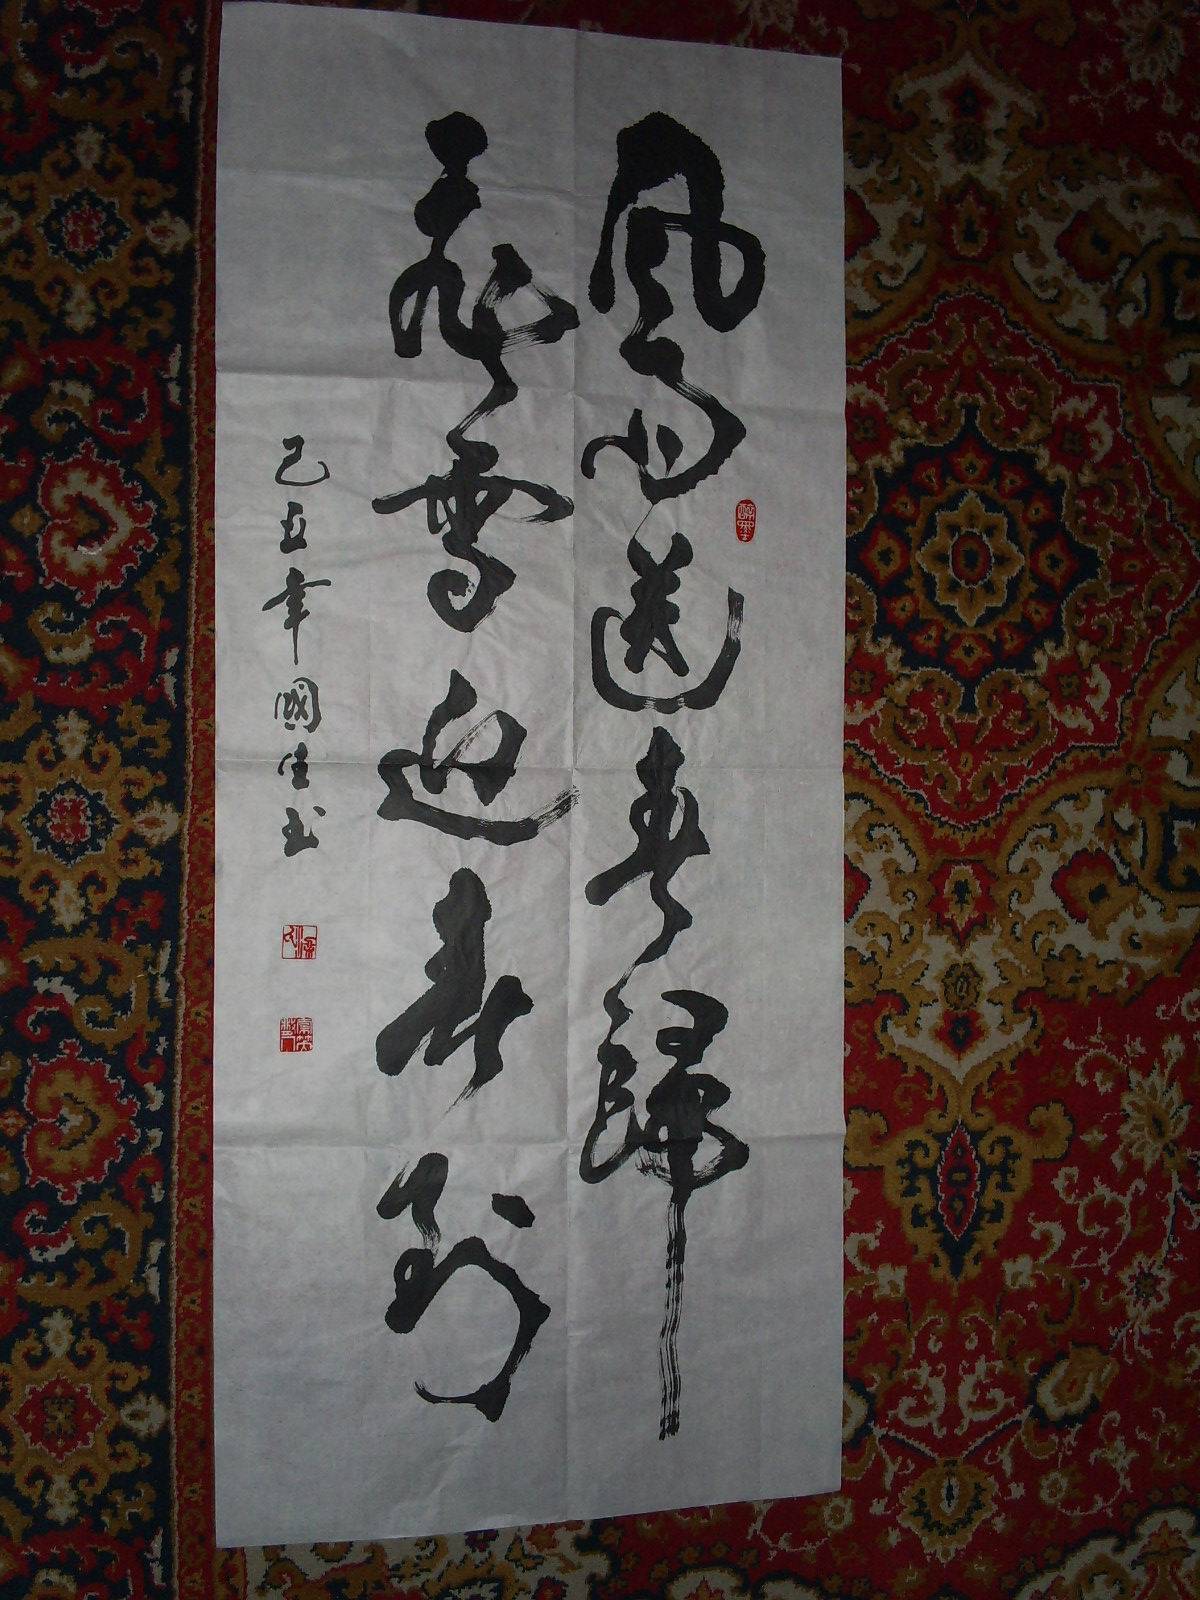 風雨送春歸
飛雪迎春到
己丑年國佳書